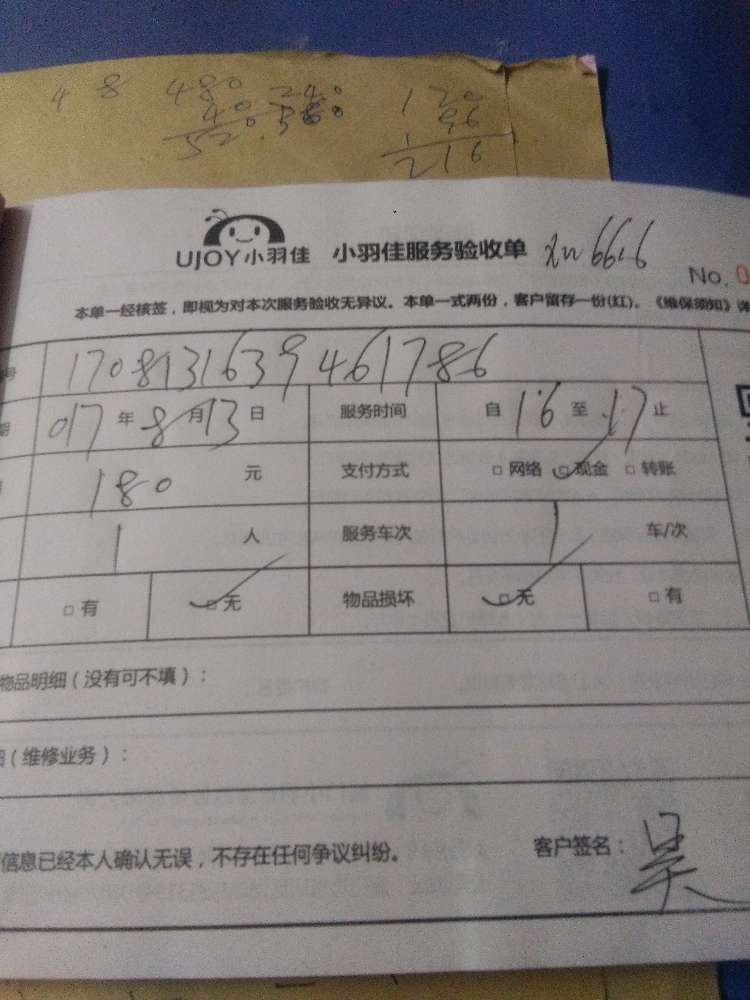 4 8 480 240 120
40 360 96
520 216
UJOY小羽佳 小羽佳服务验收单 6616
No. 0
本单一经核签，即视为对本次服务验收无异议。本单一式两份，客户留存一份(红)。《维保须知》详
号 1708131639461786
期 017年8月13日 服务时间 自16至17止
180元 支付方式 □网络 □现金 □转账
1人 服务车次 1车/次
□有 □无 物品损坏 □无 □有
物品明细（没有可不填）：
细（维修业务）：
信息已经本人确认无误，不存在任何争议纠纷。 客户签名：吴